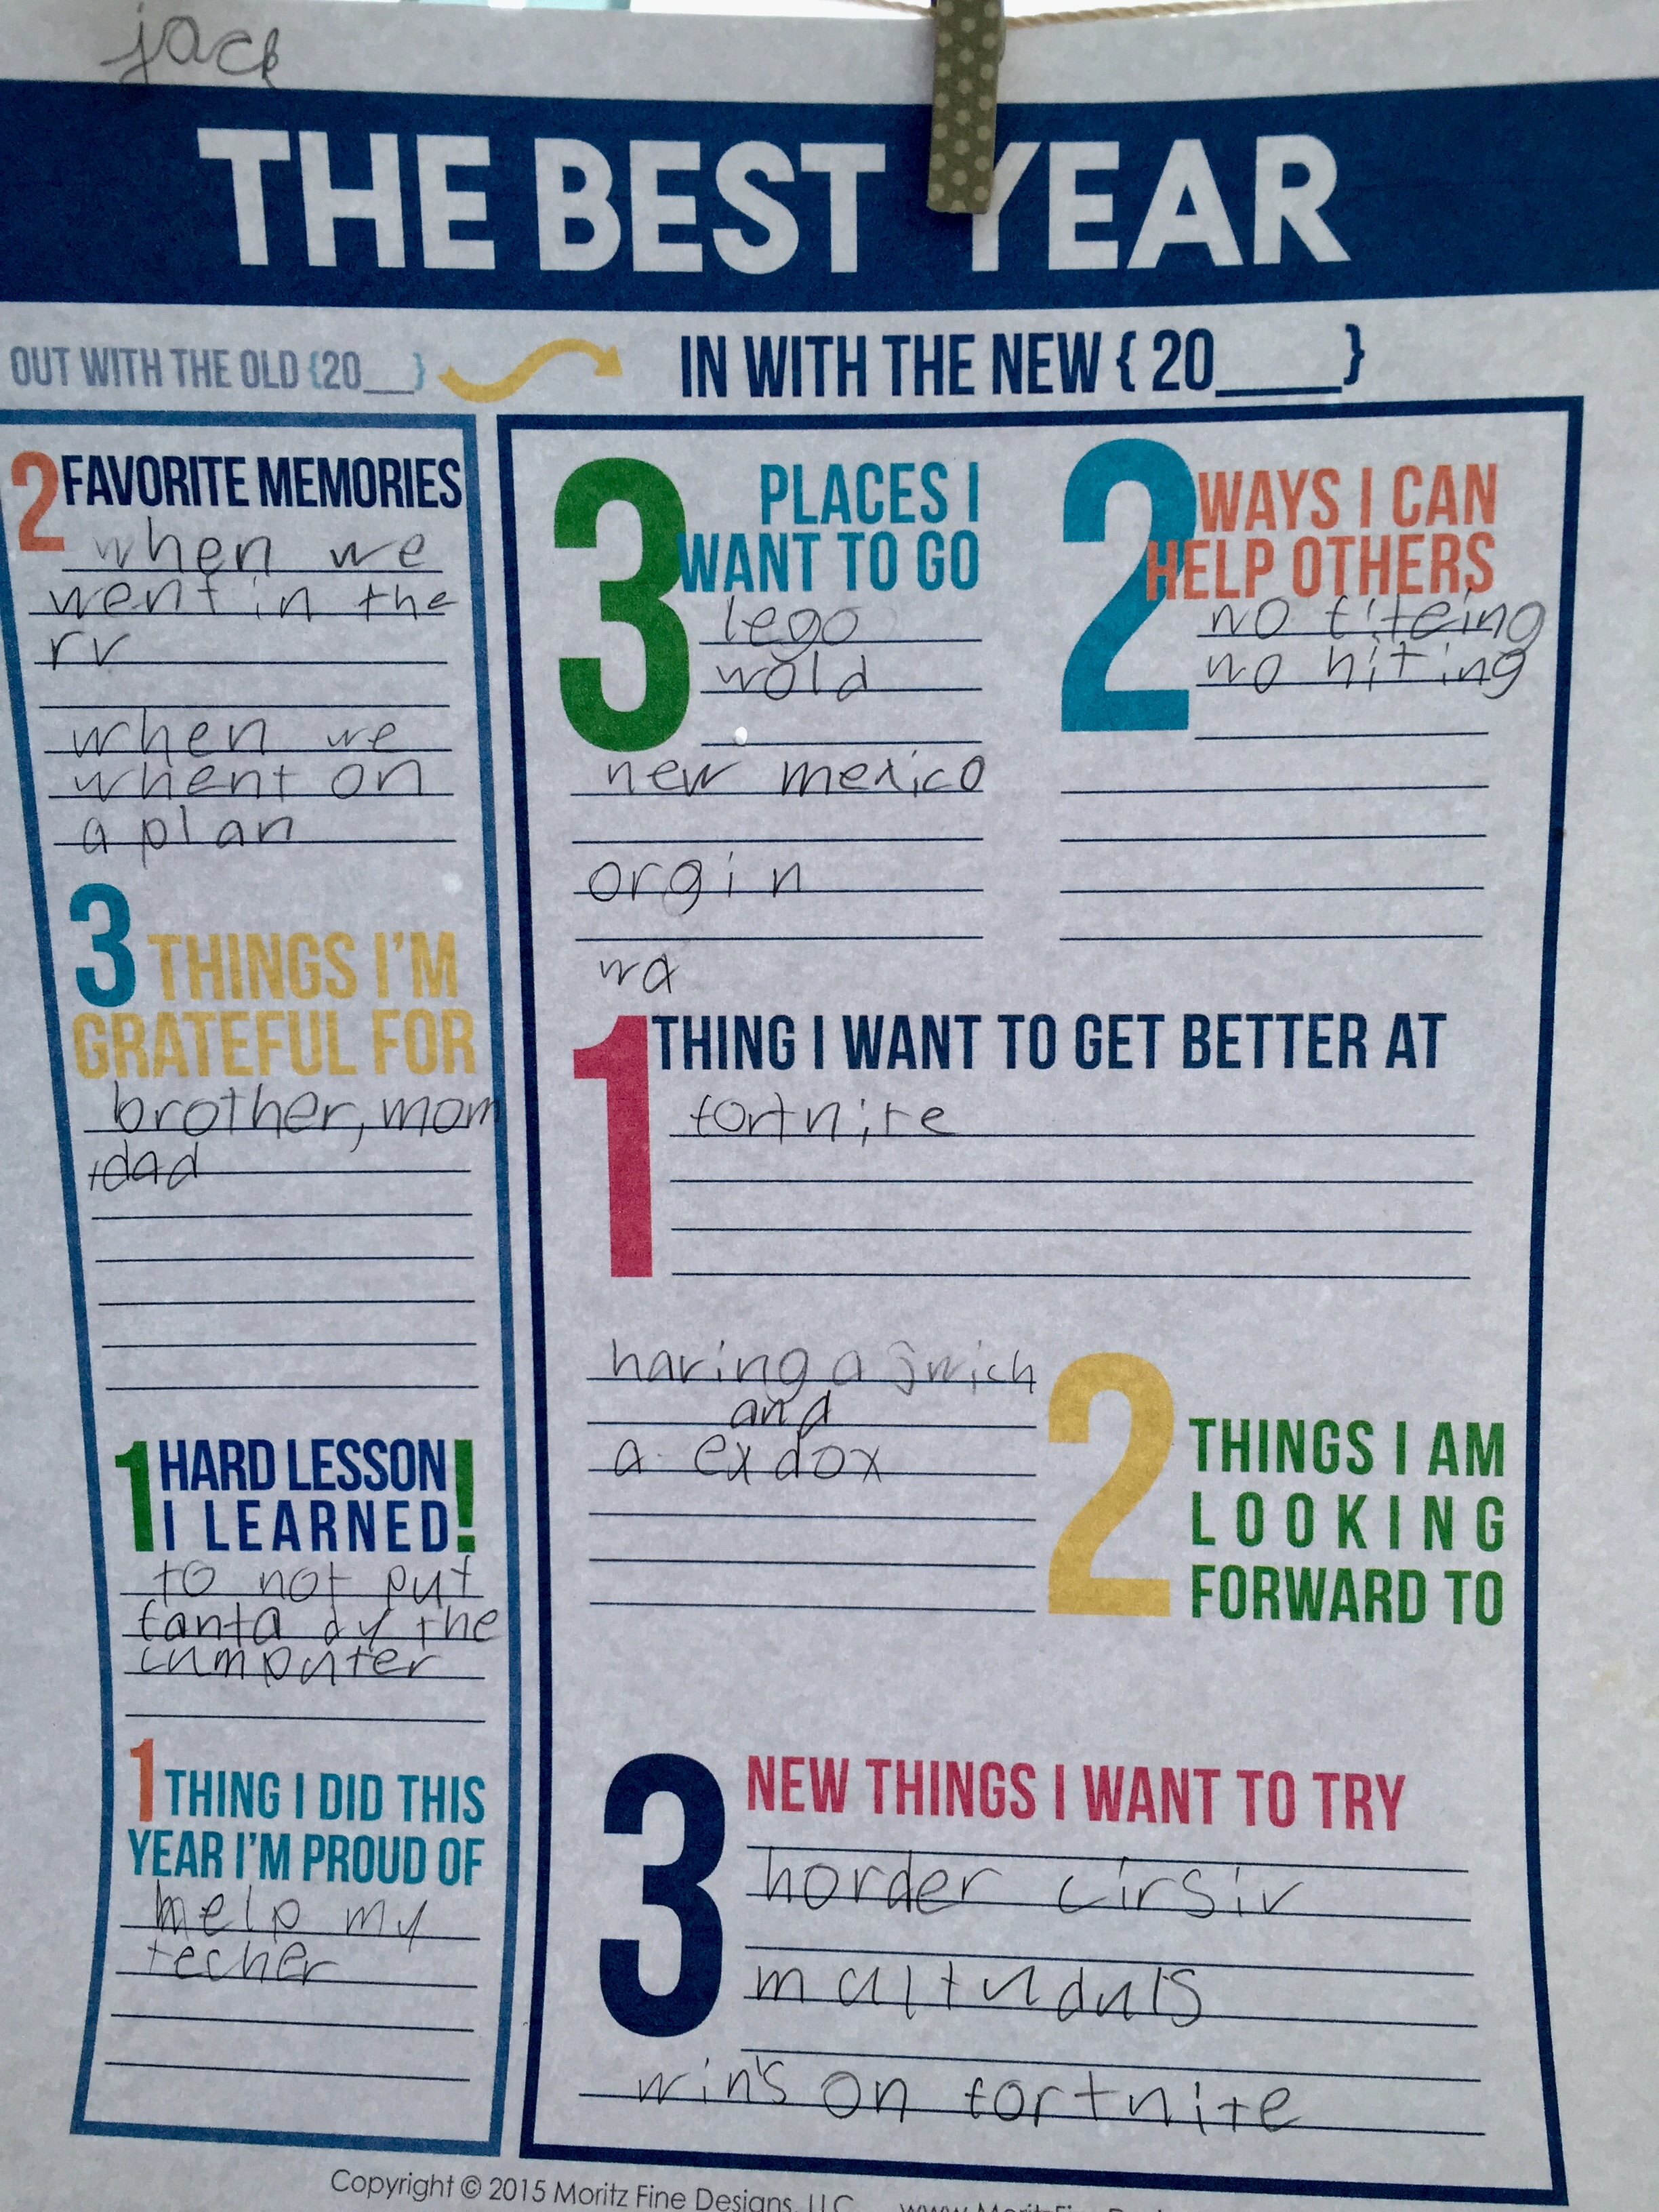 jack
THE BEST YEAR
OUT WITH THE OLD {20__}
IN WITH THE NEW { 20____}
2 FAVORITE MEMORIES
when we
went in the
rv
when we
whent on
a plan
3 THINGS I'M
GRATEFUL FOR
brother, mom
, dad
1 HARD LESSON
I LEARNED!
to not put
fanta dy the
cumputer
1 THING I DID THIS
YEAR I'M PROUD OF
help my
techer
3 PLACES I
WANT TO GO
lego
wold
new mexico
orgin
wa
2 WAYS I CAN
HELP OTHERS
no fiteing
no hiting
1 THING I WANT TO GET BETTER AT
fortnite
having a swich
and
a exdox
2 THINGS I AM
LOOKING
FORWARD TO
3 NEW THINGS I WANT TO TRY
horder cirsiv
multuduls
win's on fortnite
Copyright © 2015 Moritz Fine Designs, LLC